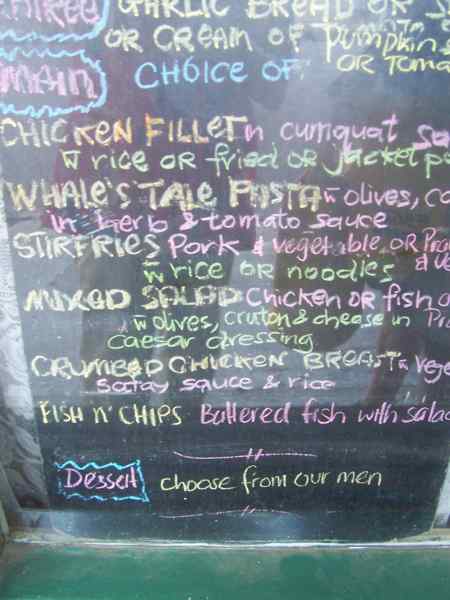 GARLIC BREAD OR
OR CREAM OF PUMPKIN &
OR TOMA
MAIN CHOICE OF
CHICKEN FILLET n cumquat sa
w rice OR fried OR jacket po
WHALE'S TALE PASTA w olives, co
in herb & tomato sauce
STIRFRIES Pork & vegetable, OR Pra
w rice OR noodles & ve
MIXED SALAD Chicken OR fish o
w olives, cruton & cheese in Pr
caesar dressing
CRUMBED CHICKEN BREAST n vege
satay sauce & rice
FISH N' CHIPS Buttered fish with salad
Dessert choose from our men